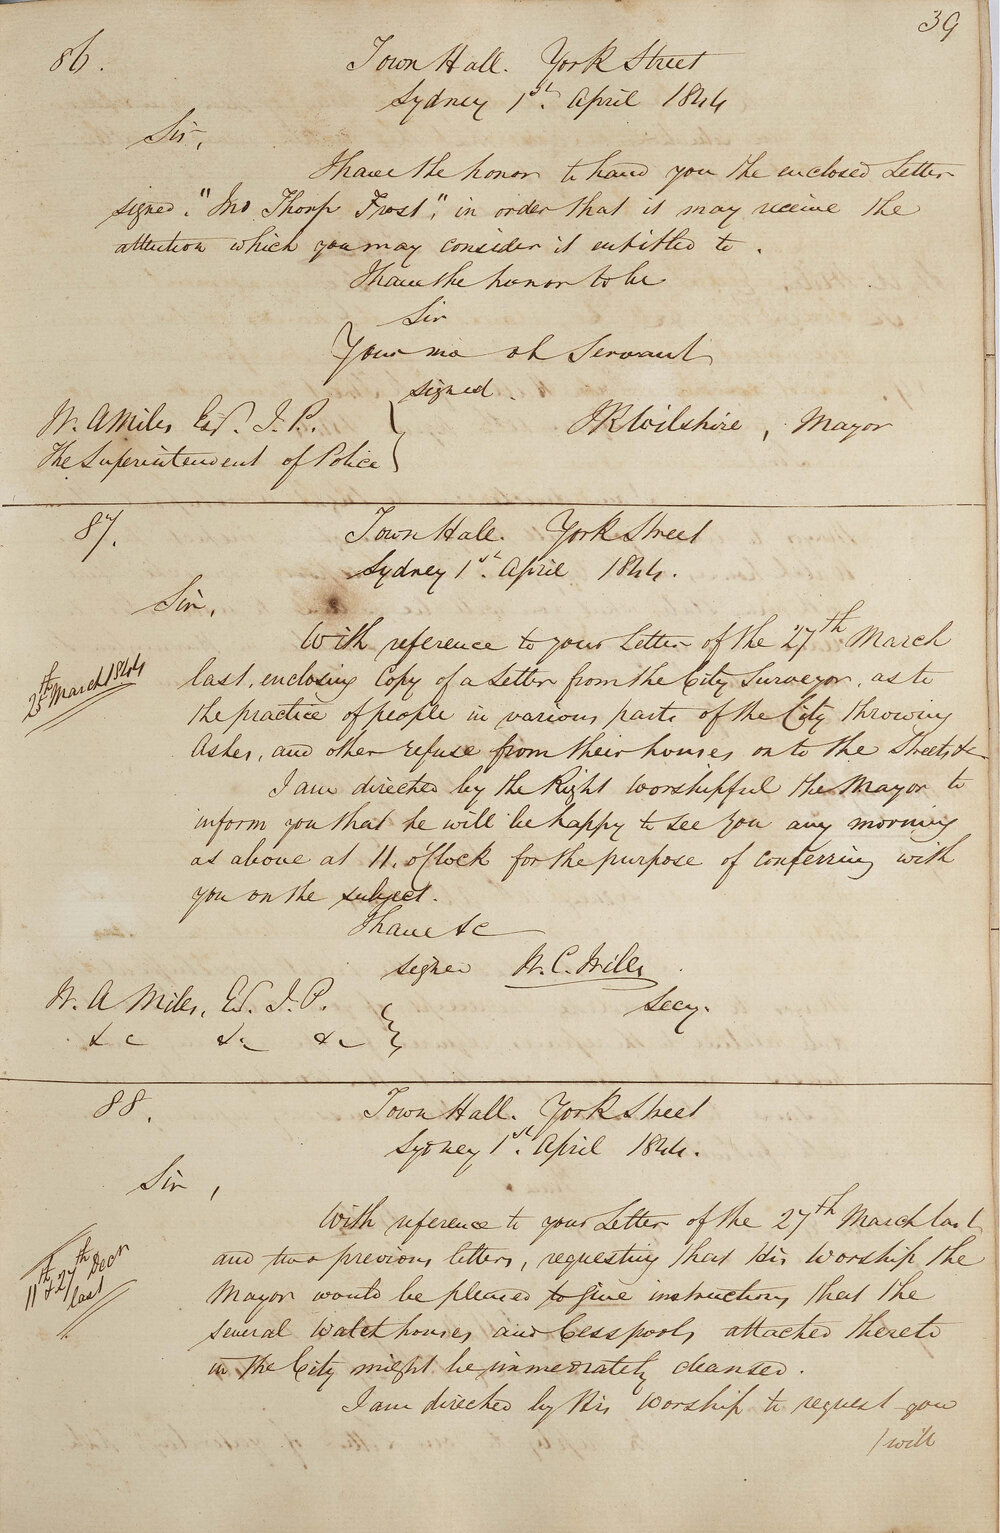 39
86.
Town Hall. York Street
Sydney 1st. April 1844
Sir,
I have the honor to hand you the enclosed Letter
signed "Jno Thorp Frost", in order that it may receive the
attention which you may consider it entitled to.
I have the honor to be
Sir
Your mo ob Servant
signed.
W. A Miles Esq. J. P.
J R Wilshire, Mayor
The Superintendent of Police
87.
Town Hall. York Street
Sydney 1st. April 1844.
Sir,
With reference to your Letter of the 27th March
25th March 1844
last, enclosing Copy of a Letter from the City Surveyor, as to
the practice of people in various parts of the City throwing
Ashes, and other refuse from their houses on to the Streets &c
I am directed by the Right Worshipful the Mayor to
inform you that he will be happy to see you any morning
as above at 11. o'Clock for the purpose of conferring with
you on the subject.
I have &c
signed W. C. Wills
Secy.
W. A Miles, Esq. J. P.
&c &c &c
88.
Town Hall. York Street
Sydney 1st. April 1844.
Sir,
With reference to your Letter of the 27th March last
11th & 27th Decr
last
and two previous letters, requesting that His Worship the
Mayor would be pleased to give instructions that the
several Watch houses and Cesspools attached thereto
in the City might be immediately cleansed.
I am directed by His Worship to request you
/ with